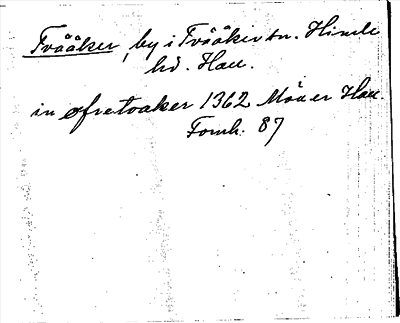 Tvååker, by i Tvååker sn. Himle
hd. Hall.
in øfretvaker 1362 Möller Hall.
Fornh. 87